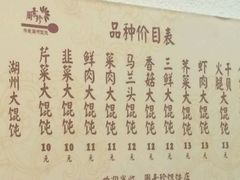 品种价目表
湖州大馄饨
芹菜大馄饨 10元
韭菜大馄饨 10元
鲜肉大馄饨 11元
菜肉大馄饨 11元
马兰头大馄饨 12元
香菇大馄饨 12元
三鲜大馄饨 12元
荠菜大馄饨 13元
虾肉大馄饨 13元
干贝火腿大 13